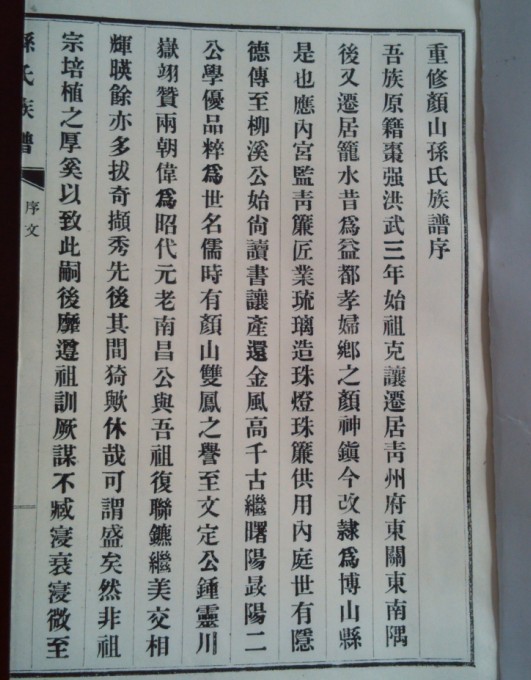 重修顏山孫氏族譜序
吾族原籍棗强洪武三年始祖克讓遷居靑州府東關東南隅
後又遷居籠水昔爲益都孝婦鄉之顏神鎭今改隸爲博山縣
是也應內宮監靑簾匠業琉璃造珠燈珠簾供用內庭世有隱
德傳至柳溪公始尙讀書讓產還金風高千古繼曙陽晸陽二
公學優品粹爲世名儒時有顏山雙鳳之譽至文定公鍾靈川
嶽翊贊兩朝偉爲昭代元老南昌公與吾祖復聯鑣繼美交相
輝暎餘亦多拔奇擷秀先後其間猗歟休哉可謂盛矣然非祖
宗培植之厚奚以致此嗣後靡遵祖訓厥謀不臧寖衰寖微至
孫氏族譜
序文